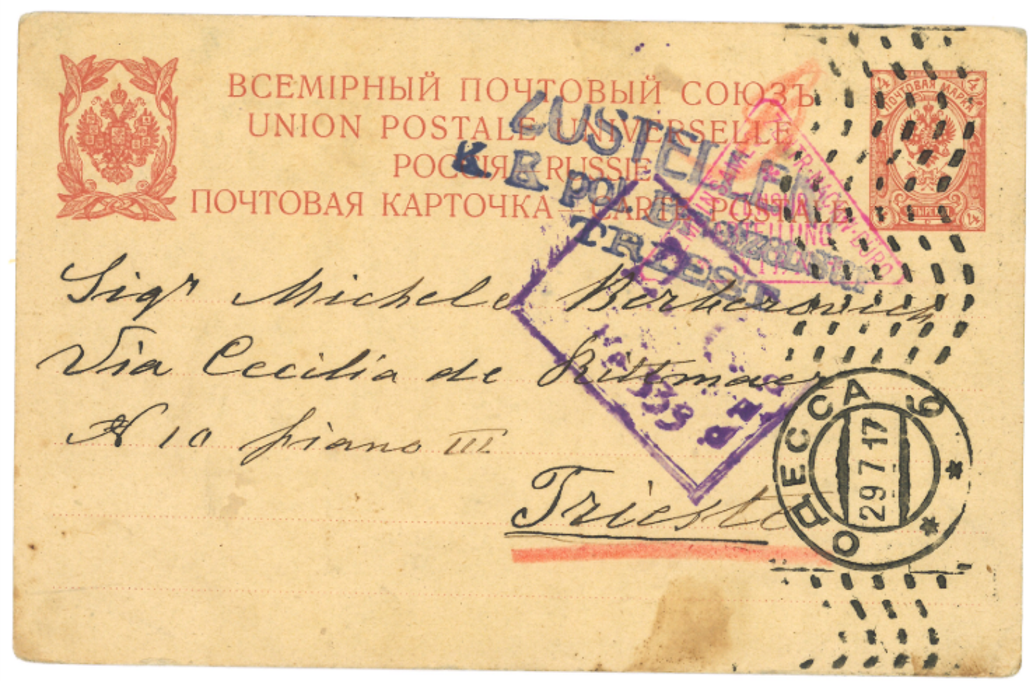 ВСЕМІРНЫЙ ПОЧТОВЫЙ СОЮЗЪ
UNION POSTALE UNIVERSELLE
РОССІЯ RUSSIE
ПОЧТОВАЯ КАРТОЧКА — CARTE POSTALE
ПОЧТОВАЯ МАРКА
ZUSTELLEN
K K pol.
TRIEST
Sigr Michele
Via Cecilia de Rittmayer
N 10 piano III
Trieste
939
ОДЕССА 9
29 7 17